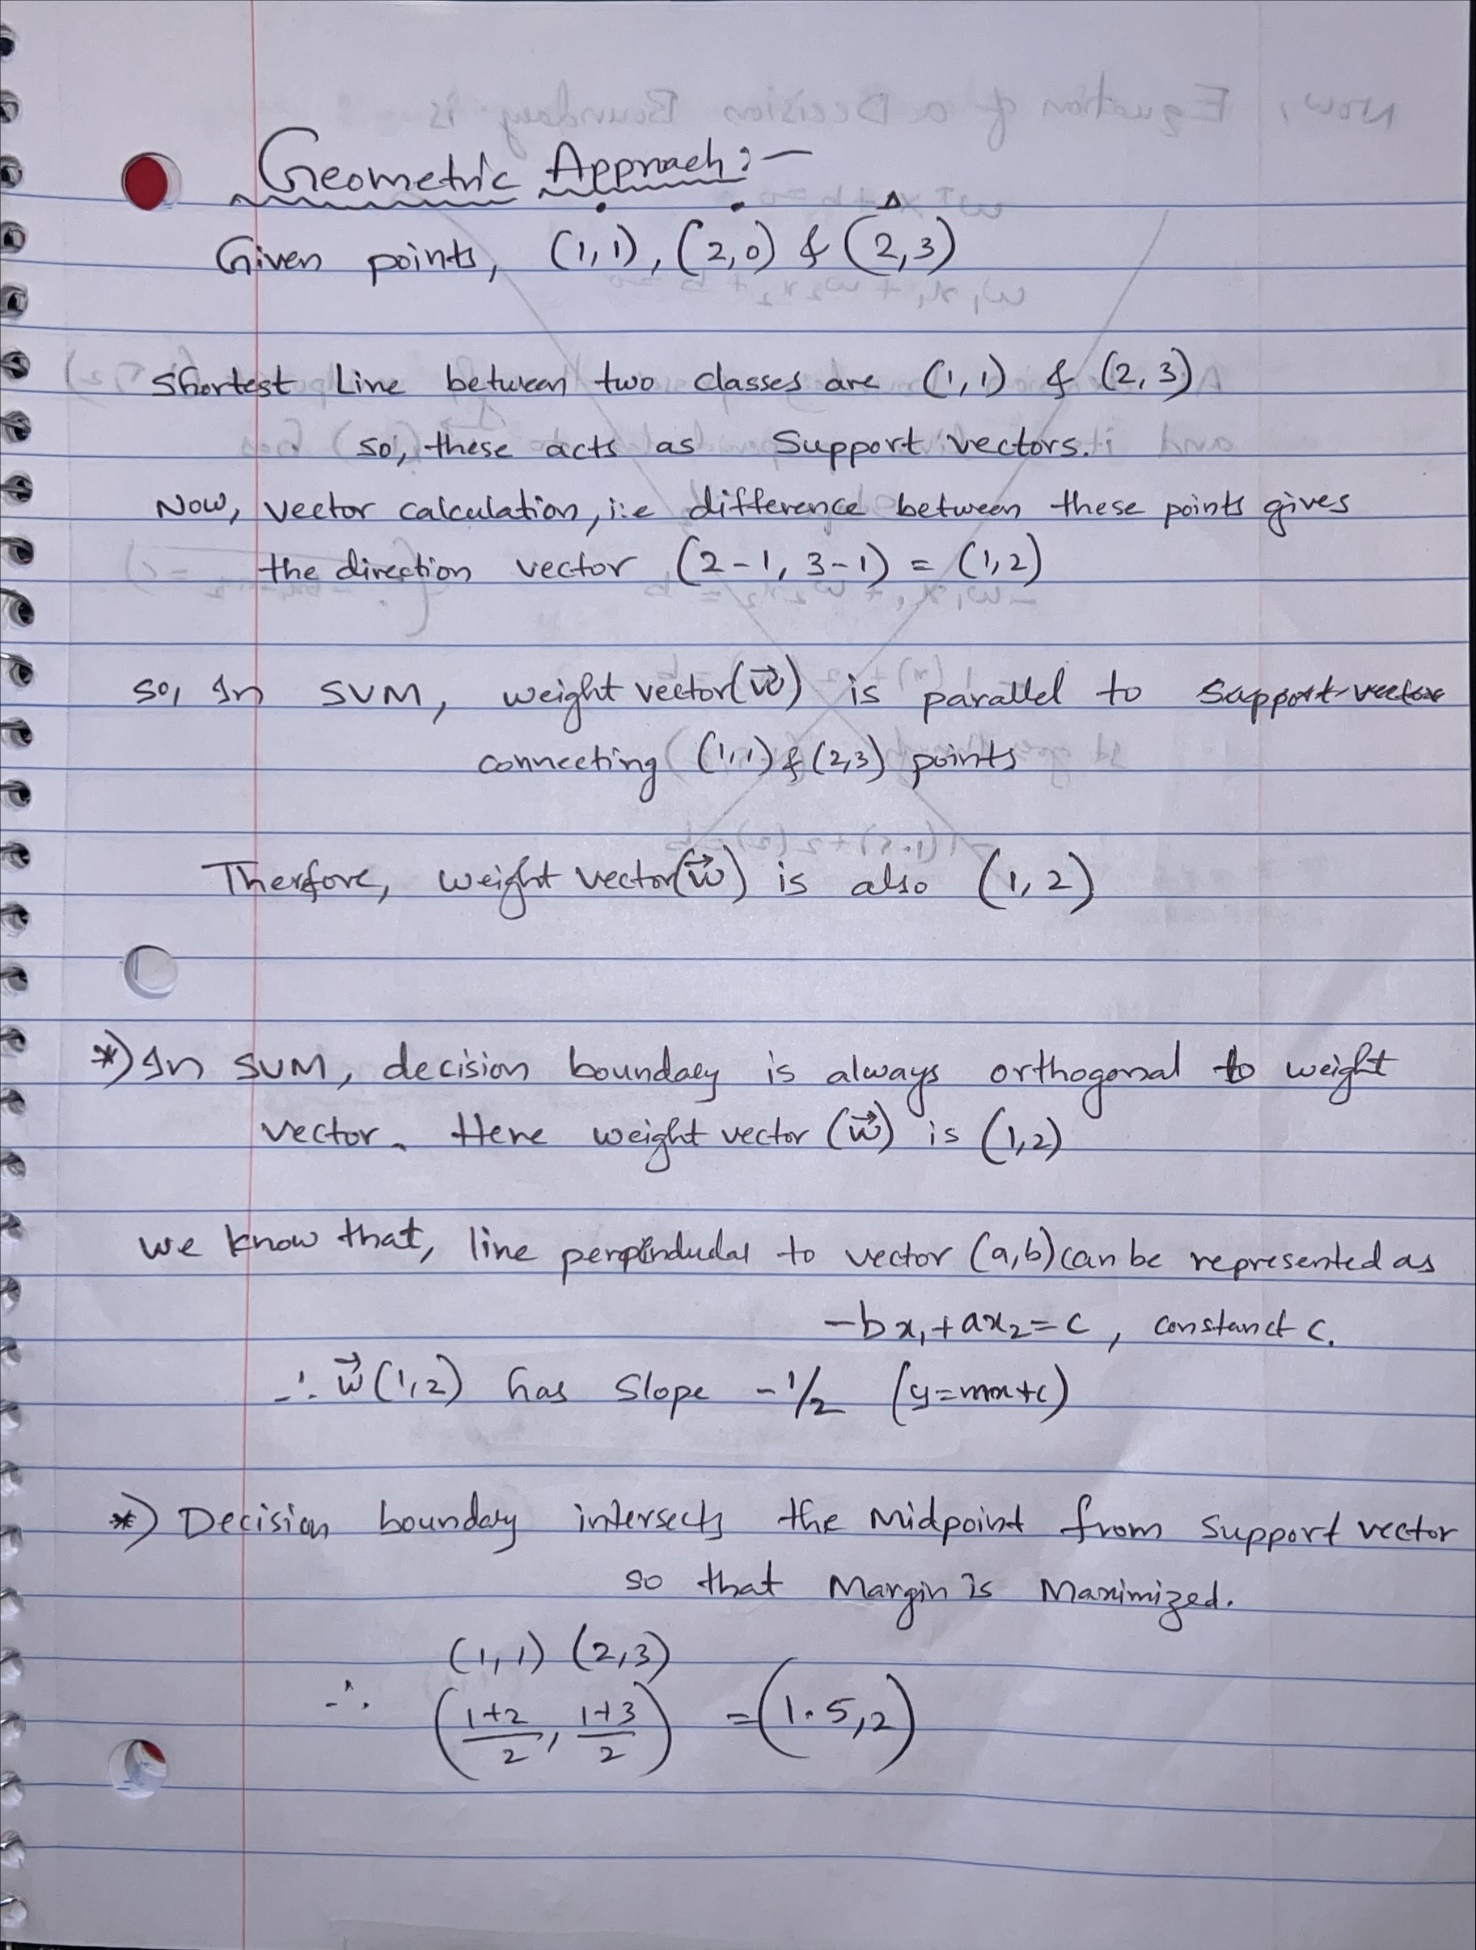 Geometric Approach :-
Given points, (1,1), (2,0) & (2,3)
Shortest Line between two classes are (1,1) & (2,3)
so, these acts as Support vectors.
Now, vector calculation, i.e difference between these points gives
the direction vector (2-1, 3-1) = (1,2)
so, In SVM, weight vector(w⃗) is parallel to Support vectors
connecting (1,1) & (2,3) points
Therefore, weight vector(w⃗) is also (1,2)
*) In SVM, decision boundary is always orthogonal to weight
vector. Here weight vector (w⃗) is (1,2)
we know that, line perpendudal to vector (a,b) can be represented as
-bx₁+ax₂=c, constanct c.
∴ w⃗(1,2) has slope -1/2 (y=mx+c)
*) Decision boundary intersects the midpoint from support vector
so that Margin is Maximized.
(1,1) (2,3)
∴ (1+2/2, 1+3/2) = (1.5,2)